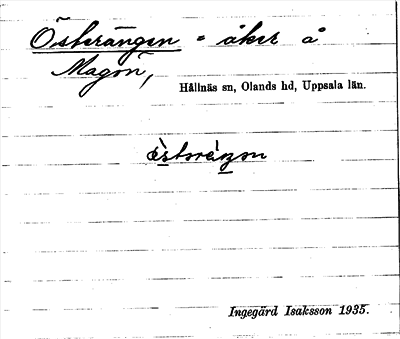 Österängen = åker å
Magön,
Hållnäs sn, Olands hd, Uppsala län.
Ingegärd Isaksson 1935.